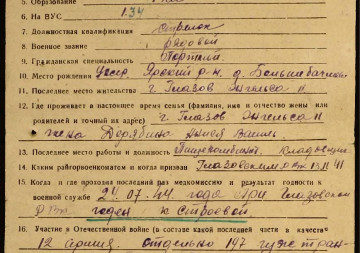 5. Образование
6. На ВУС 134
7. Должностная квалификация стрелок
8. Военное звание рядовой
9. Гражданская специальность Портной
10. Место рождения Удсср. Ярский р-н. д.
11. Последнее место жительства г. Глазов Энгельса 11
12. Где проживает в настоящее время семья (фамилия, имя и отчество жены или
родителей и точный их адрес) г. Глазов Энгельса 11
жена
13. Последнее место работы и должность
14. Каким райгорвоенкоматом и когда призван Глазовским
15. Когда и где проходил последний раз медкомиссию и результат годности к
военной службе 21. 07. 44. года при Глазовском
годен к строевой
16. Участие в Отечественной войне (в составе какой последней части в качестве
12 Армия. отдельно 147